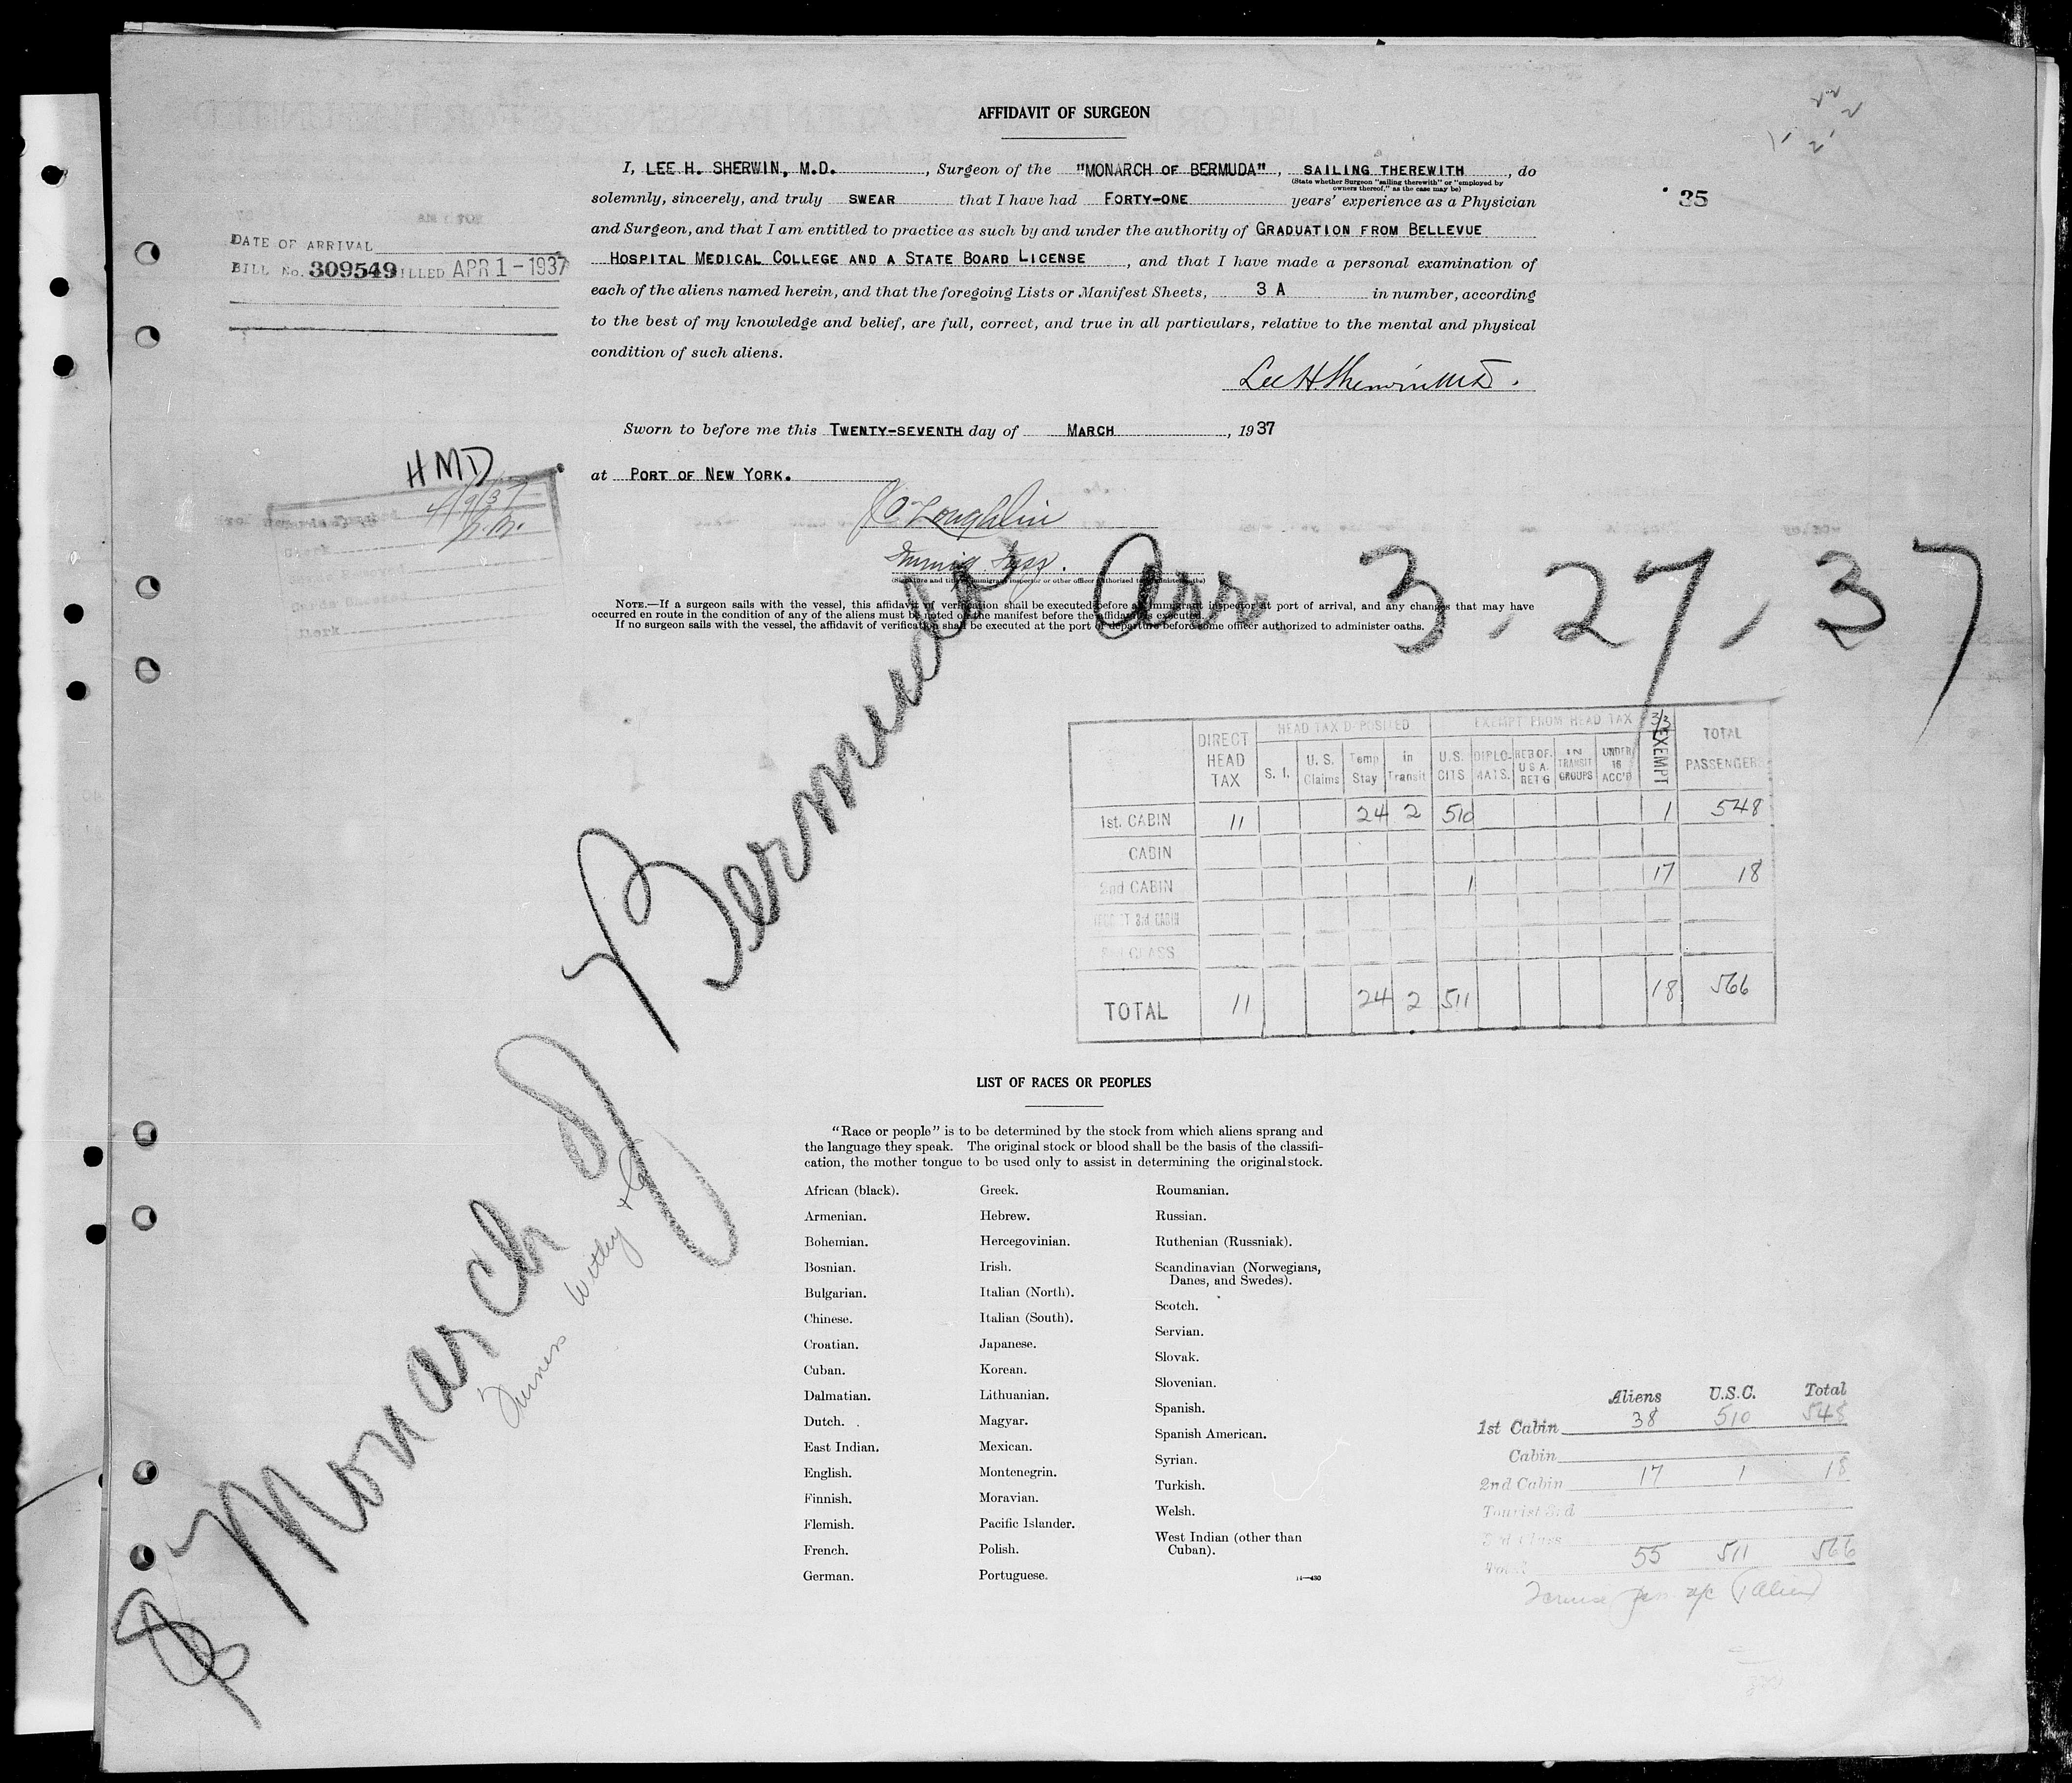 AFFIDAVIT OF SURGEON
I, LEE H. SHERWIN, M.D. , Surgeon of the "MONARCH OF BERMUDA" , SAILING THEREWITH , do
(State whether Surgeon "sailing therewith" or "employed by
owners thereof," as the case may be)
35
solemnly, sincerely, and truly SWEAR that I have had FORTY-ONE years' experience as a Physician
and Surgeon, and that I am entitled to practice as such by and under the authority of GRADUATION FROM BELLEVUE
HOSPITAL MEDICAL COLLEGE AND A STATE BOARD LICENSE , and that I have made a personal examination of
each of the aliens named herein, and that the foregoing Lists or Manifest Sheets, 3 A in number, according
to the best of my knowledge and belief, are full, correct, and true in all particulars, relative to the mental and physical
condition of such aliens.
DATE OF ARRIVAL
BILL No. 309549 ILLED APR 1 - 1937
Lee H Sherwin M.D.
Sworn to before me this TWENTY-SEVENTH day of MARCH , 1937
at PORT OF NEW YORK.
HMD
4/9/37
Clerk
Clerk
O'Loughlin
Immig Insp.
(Signature and title of immigrant inspector or other officer authorized to administer oaths)
NOTE.—If a surgeon sails with the vessel, this affidavit of verification shall be executed before an immigrant inspector at port of arrival, and any changes that may have
occurred en route in the condition of any of the aliens must be noted on the manifest before the affidavit is executed.
If no surgeon sails with the vessel, the affidavit of verification shall be executed at the port of departure before some officer authorized to administer oaths.
Monarch of Bermuda Arr. 3, 27, 37
Furness Withy + Co
DIRECT HEAD TAX HEAD TAX DEPOSITED EXEMPT FROM HEAD TAX 3/3 EXEMPT TOTAL PASSENGERS
S. I. U. S. Claims Temp Stay in Transit U.S. CITS DIPLO- MATS. RES OF U S A. RET'G IN TRANSIT GROUPS UNDER 16 ACC'D
1st. CABIN 11 24 2 510 1 548
CABIN
2nd CABIN 1 17 18
3rd CABIN
3rd CLASS
TOTAL 11 24 2 511 18 566
LIST OF RACES OR PEOPLES
"Race or people" is to be determined by the stock from which aliens sprang and
the language they speak. The original stock or blood shall be the basis of the classifi-
cation, the mother tongue to be used only to assist in determining the original stock.
African (black).
Armenian.
Bohemian.
Bosnian.
Bulgarian.
Chinese.
Croatian.
Cuban.
Dalmatian.
Dutch.
East Indian.
English.
Finnish.
Flemish.
French.
German.
Greek.
Hebrew.
Hercegovinian.
Irish.
Italian (North).
Italian (South).
Japanese.
Korean.
Lithuanian.
Magyar.
Mexican.
Montenegrin.
Moravian.
Pacific Islander.
Polish.
Portuguese.
Roumanian.
Russian.
Ruthenian (Russniak).
Scandinavian (Norwegians,
Danes, and Swedes).
Scotch.
Servian.
Slovak.
Slovenian.
Spanish.
Spanish American.
Syrian.
Turkish.
Welsh.
West Indian (other than
Cuban).
14—430
Aliens U.S.C. Total
1st Cabin 38 510 548
Cabin
2nd Cabin 17 1 18
Tourist 3rd
3rd Class
Total 55 511 566